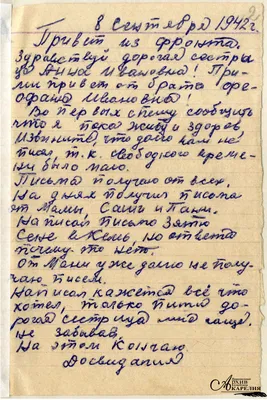 8 Сентября 1942 г.
Привет из фронта.
Здравствуй дорогая сестри-
ца Анна Ивановна! При-
ми привет от брата Фе-
офана Ивановича!
Во первых спешу сообщить
что я пока жив и здоров
извините, что долго вам не
писал, т.к. свободного време-
ни было мало.
Письма получаю от всех.
На днях получил письма
от Мамы, Саши и Гани.
Написал письмо Зятю
Сене в Кемь, но ответа
почему то нет.
От Мани уже давно не полу-
чаю писем.
Написал кажется всё что
хотел только пиши до-
рогая сестрица мне чаще.
не забывай.
На этом кончаю
Досвидания
Архив
Карелия